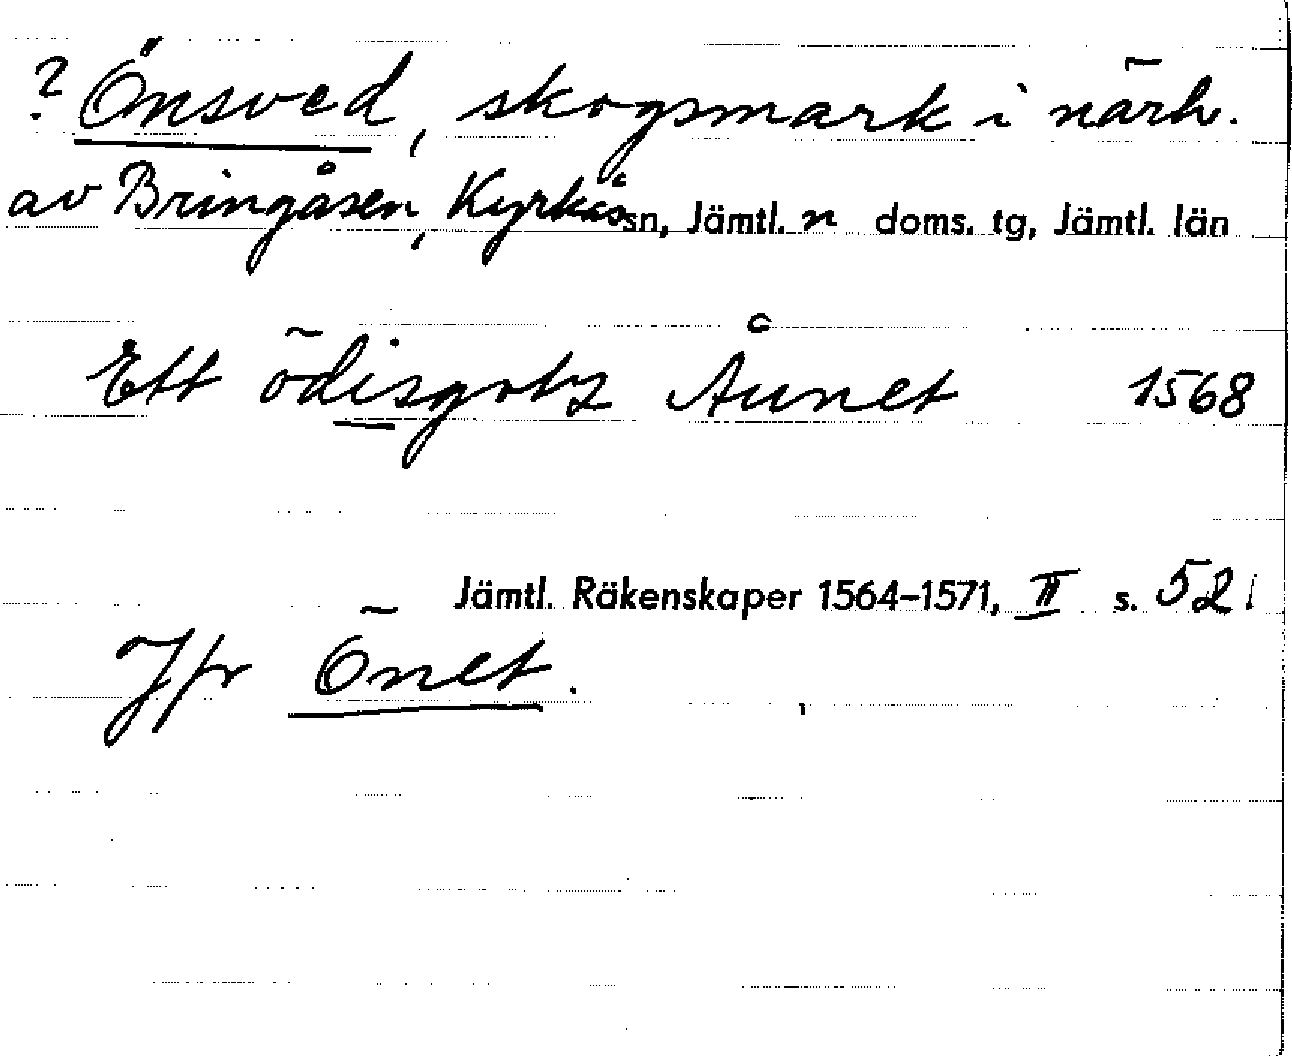 ? Önsved, skogsmark i närh.
av Bringåsen, Kyrkås sn, Jämtl. n doms. tg, Jämtl. län
Ett ödisgotz Åunet 1568
Jämtl. Räkenskaper 1564–1571, II s. 52
Jfr Önet.